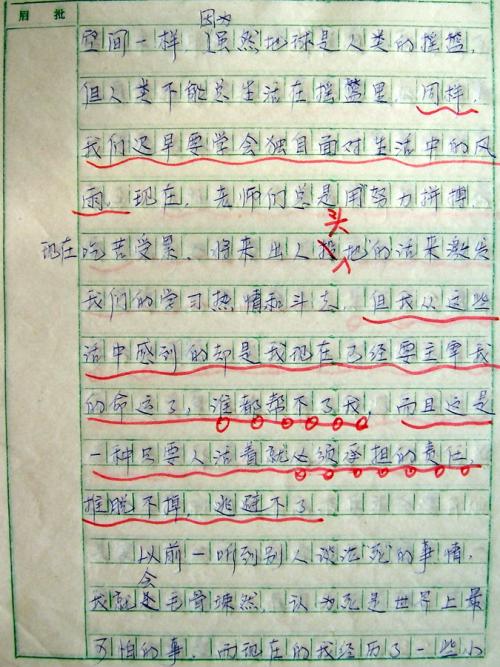 眉 批
因为
空间一样，虽然地球是人类的摇篮，
但人类不能总生活在摇篮里，同样，
我们迟早要学会独自面对生活中的风
雨。现在，老师们总是用努力拼搏，
头
现在吃苦受累，将来出人投地的话来激发
我们的学习热情和斗志，但我从这些
话中感到的却是我现在已经要主宰我
的命运了，谁都帮不了我，而且这是
一种只要人活着就必须承担的责任，
推脱不掉，逃避不了。
以前一听到别人谈论死的事情，
会
我就是毛骨悚然，认为死是世界上最
可怕的事，而现在的我经历了一些小